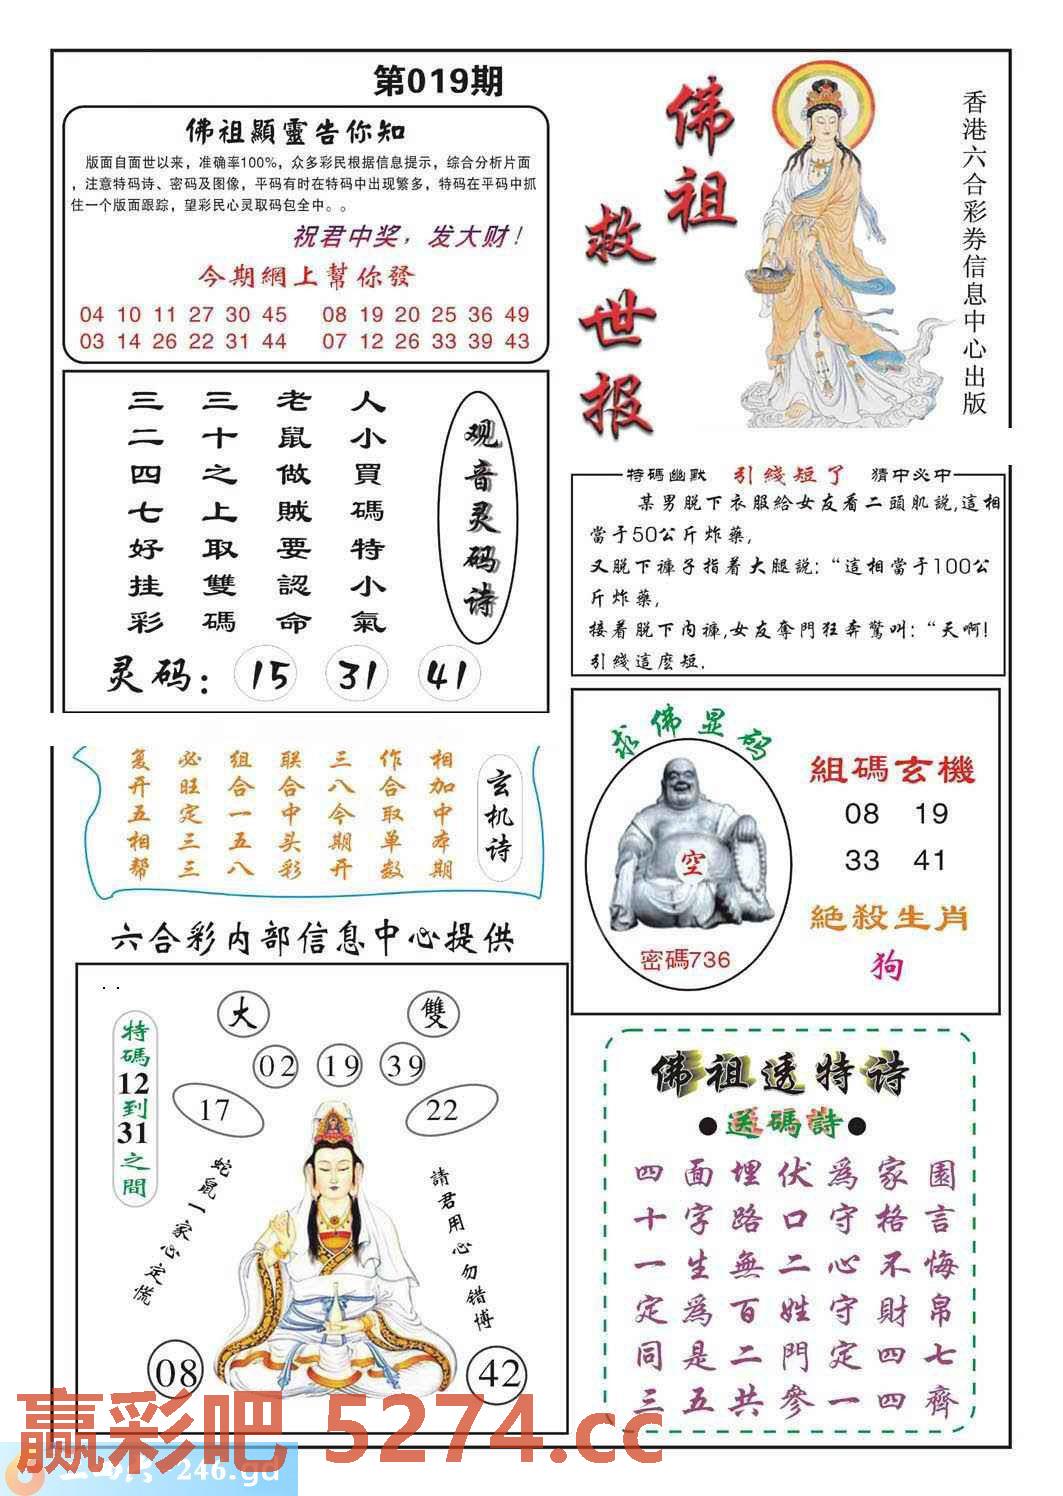 第019期
佛祖顯靈告你知
版面自面世以来，准确率100%，众多彩民根据信息提示，综合分析片面
，注意特码诗、密码及图像，平码有时在特码中出现繁多，特码在平码中抓
住一个版面跟踪，望彩民心灵取码包全中。。
祝君中奖，发大财！
今期網上幫你發
04 10 11 27 30 45 08 19 20 25 36 49
03 14 26 22 31 44 07 12 26 33 39 43
佛祖
救世报
香港六合彩券信息中心出版
观音灵码诗
人小買碼特小氣
老鼠做賊要認命
三十之上取雙碼
三二四七好挂彩
灵码：15 31 41
特碼幽默 引綫短了 猜中必中
某男脫下衣服給女友看二頭肌説,這相
當于50公斤炸藥,
又脫下褲子指着大腿説:“這相當于100公
斤炸藥,
接着脫下内褲,女友奪門狂奔驚叫:“天啊!
引綫這麽短.
玄机诗
相加中本期
作合取单数
三八今期开
联合中头彩
组合一五八
必旺定三三
复开五相帮
求佛显码
空
密碼736
組碼玄機
08 19
33 41
絶殺生肖
狗
六合彩内部信息中心提供
大 雙
02 19 39
17 22
特碼12到31之間
蛇鼠一家心定慌
請君用心勿错博
08 42
佛祖透特诗
●送碼詩●
四面埋伏爲家園
十字路口守格言
一生無二心不悔
定爲百姓守財帛
同是二門定四七
三五共參一四齊
赢彩吧 5274.cc
246.gd